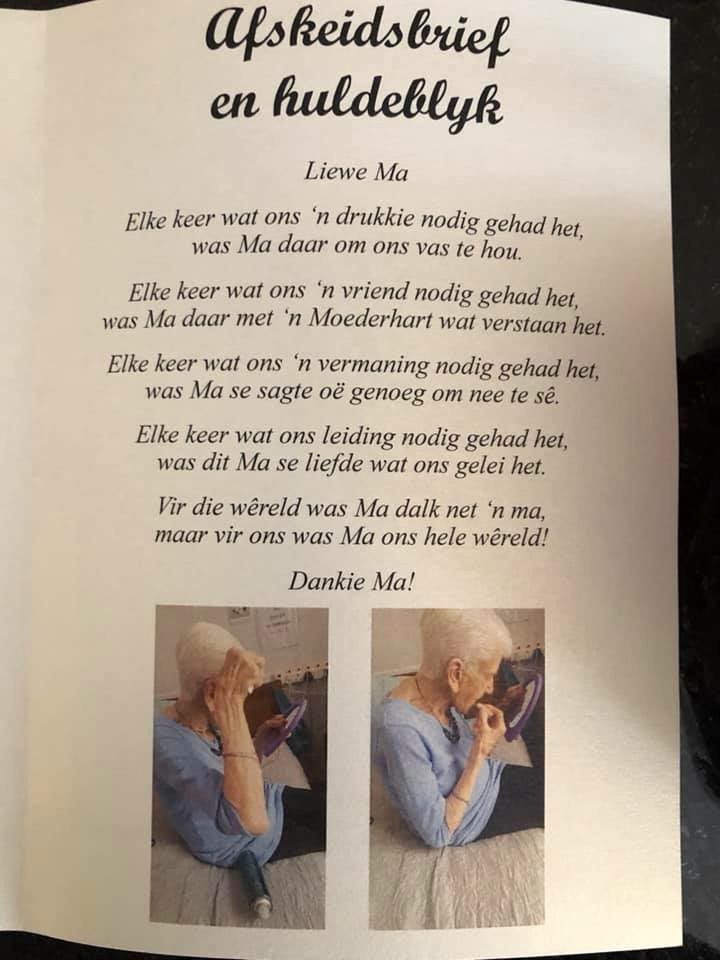 Afskeidsbrief
en huldeblyk
Liewe Ma
Elke keer wat ons ‘n drukkie nodig gehad het,
was Ma daar om ons vas te hou.
Elke keer wat ons ‘n vriend nodig gehad het,
was Ma daar met ‘n Moederhart wat verstaan het.
Elke keer wat ons ‘n vermaning nodig gehad het,
was Ma se sagte oë genoeg om nee te sê.
Elke keer wat ons leiding nodig gehad het,
was dit Ma se liefde wat ons gelei het.
Vir die wêreld was Ma dalk net ‘n ma,
maar vir ons was Ma ons hele wêreld!
Dankie Ma!